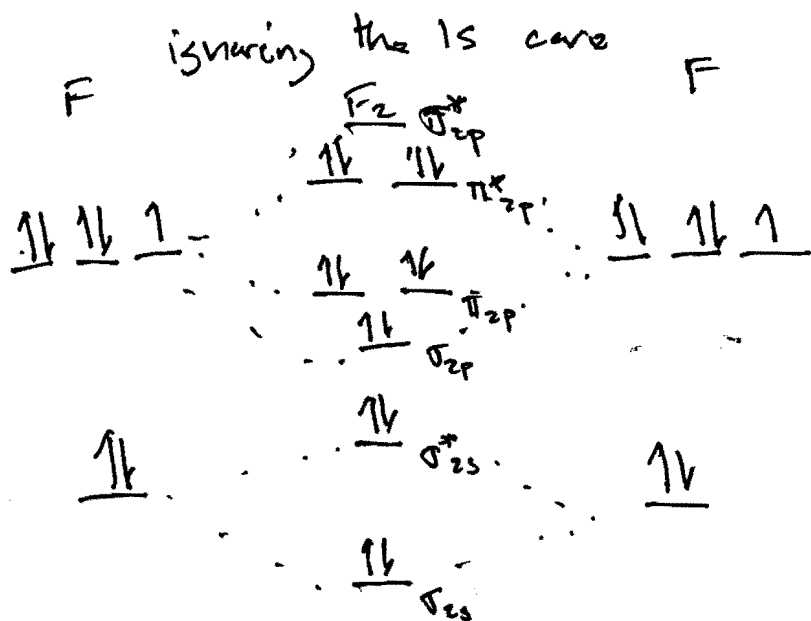 ignoring the 1s core
F F
F₂ σ*₂p
⥮ ⥮ π*₂p
⥮ ⥮ ↿ ⥮ ⥮ ↿
⥮ ⥮ π₂p
⥮ σ₂p
⥮ σ*₂s
⥮ ⥮
⥮ σ₂s